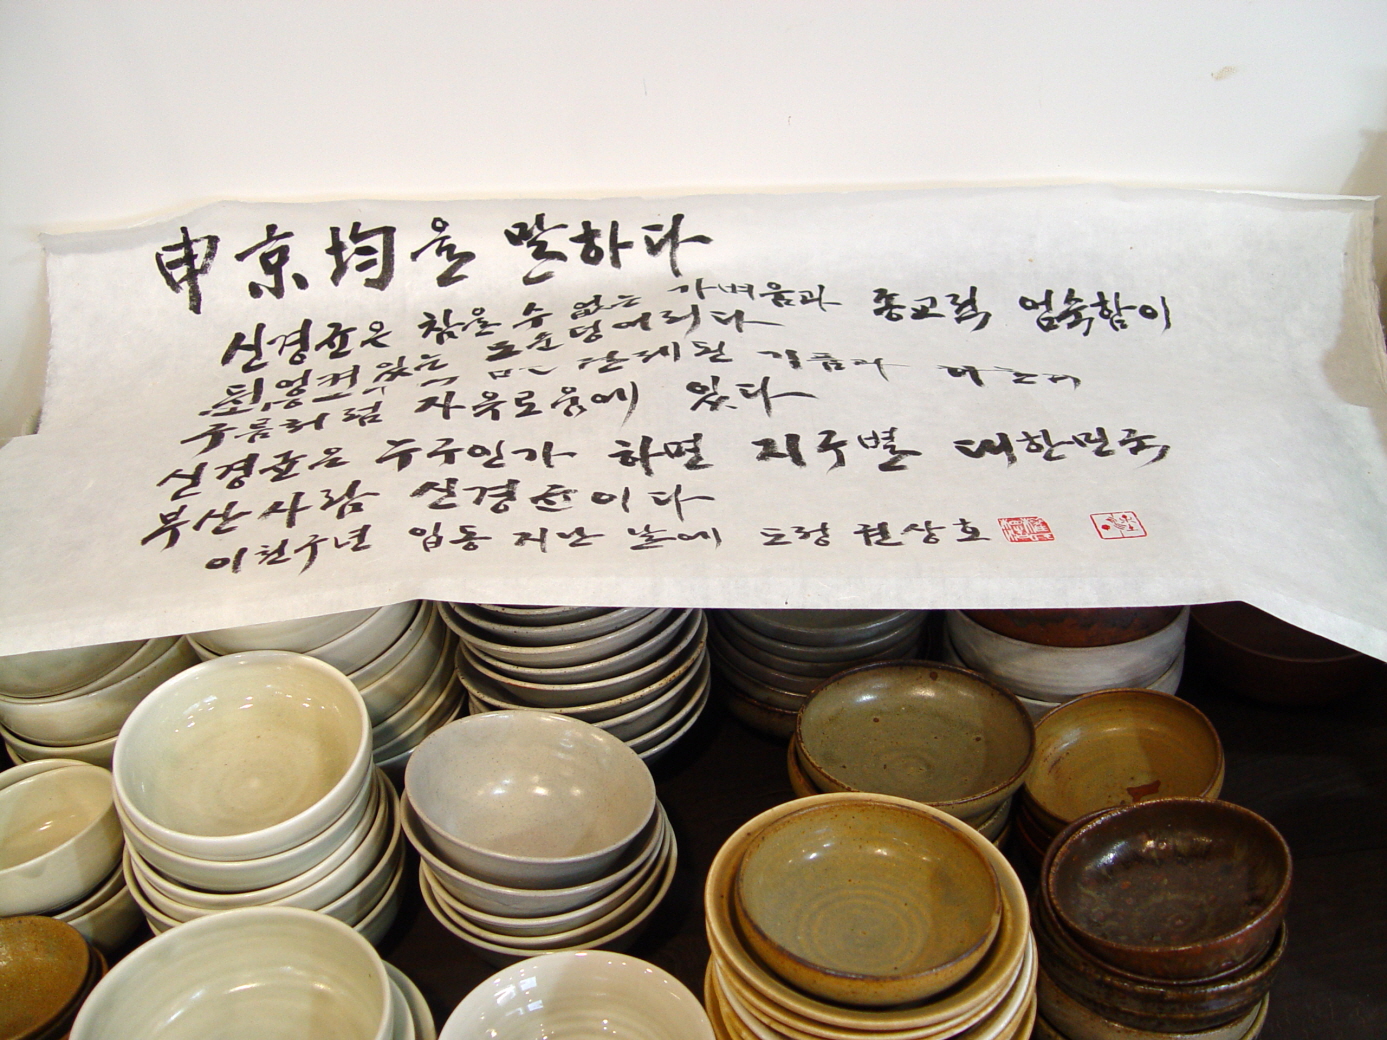 申京均을 말하다
신경균은 참을 수 없는 가벼움과 종교적 엄숙함이
뒤엉켜 있는 모순덩어리다
구름처럼 자유로움에 있다
신경균은 누구인가 하면 지구별 대한민국
부산사람 신경균이다
이천구년 입동 지난 날에 도정 권상호